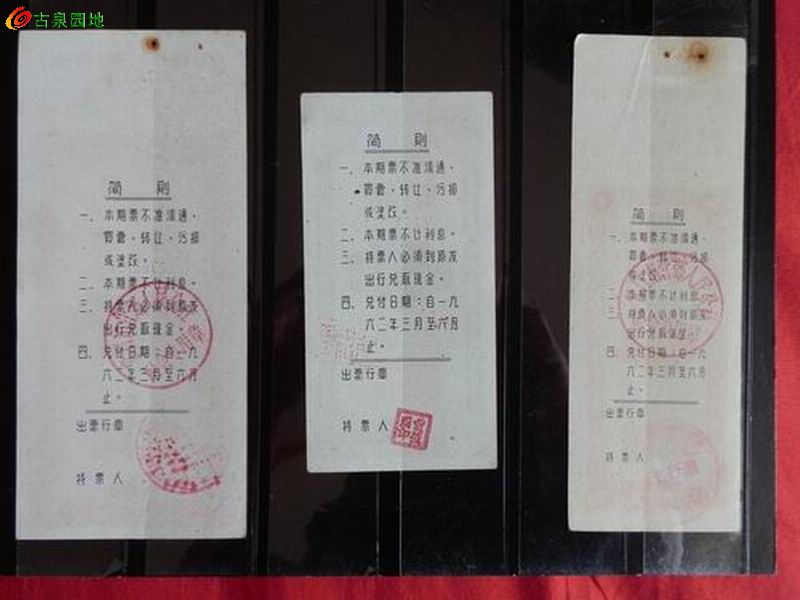 古泉园地
简 则
一、本期票不准流通、
买卖、转让、污损
或塗改。
二、本期票不计利息。
三、持票人必须到原发
出行兑取现金。
四、兑付日期：自一九
六三年三月至六月
止。
出票行章
持票人
简 则
一、本期票不准流通、
买卖、转让、污损
或塗改。
二、本期票不计利息。
三、持票人必须到原发
出行兑取现金。
四、兑付日期：自一九
六二年三月至六月
止。
出票行章
持票人
简 则
一、本期票不准流通、
买卖、转让、污损
或塗改。
二、本期票不计利息。
三、持票人必须到原发
出行兑取现金。
四、兑付日期：自一九
六二年三月至六月
止。
出票行章
持票人